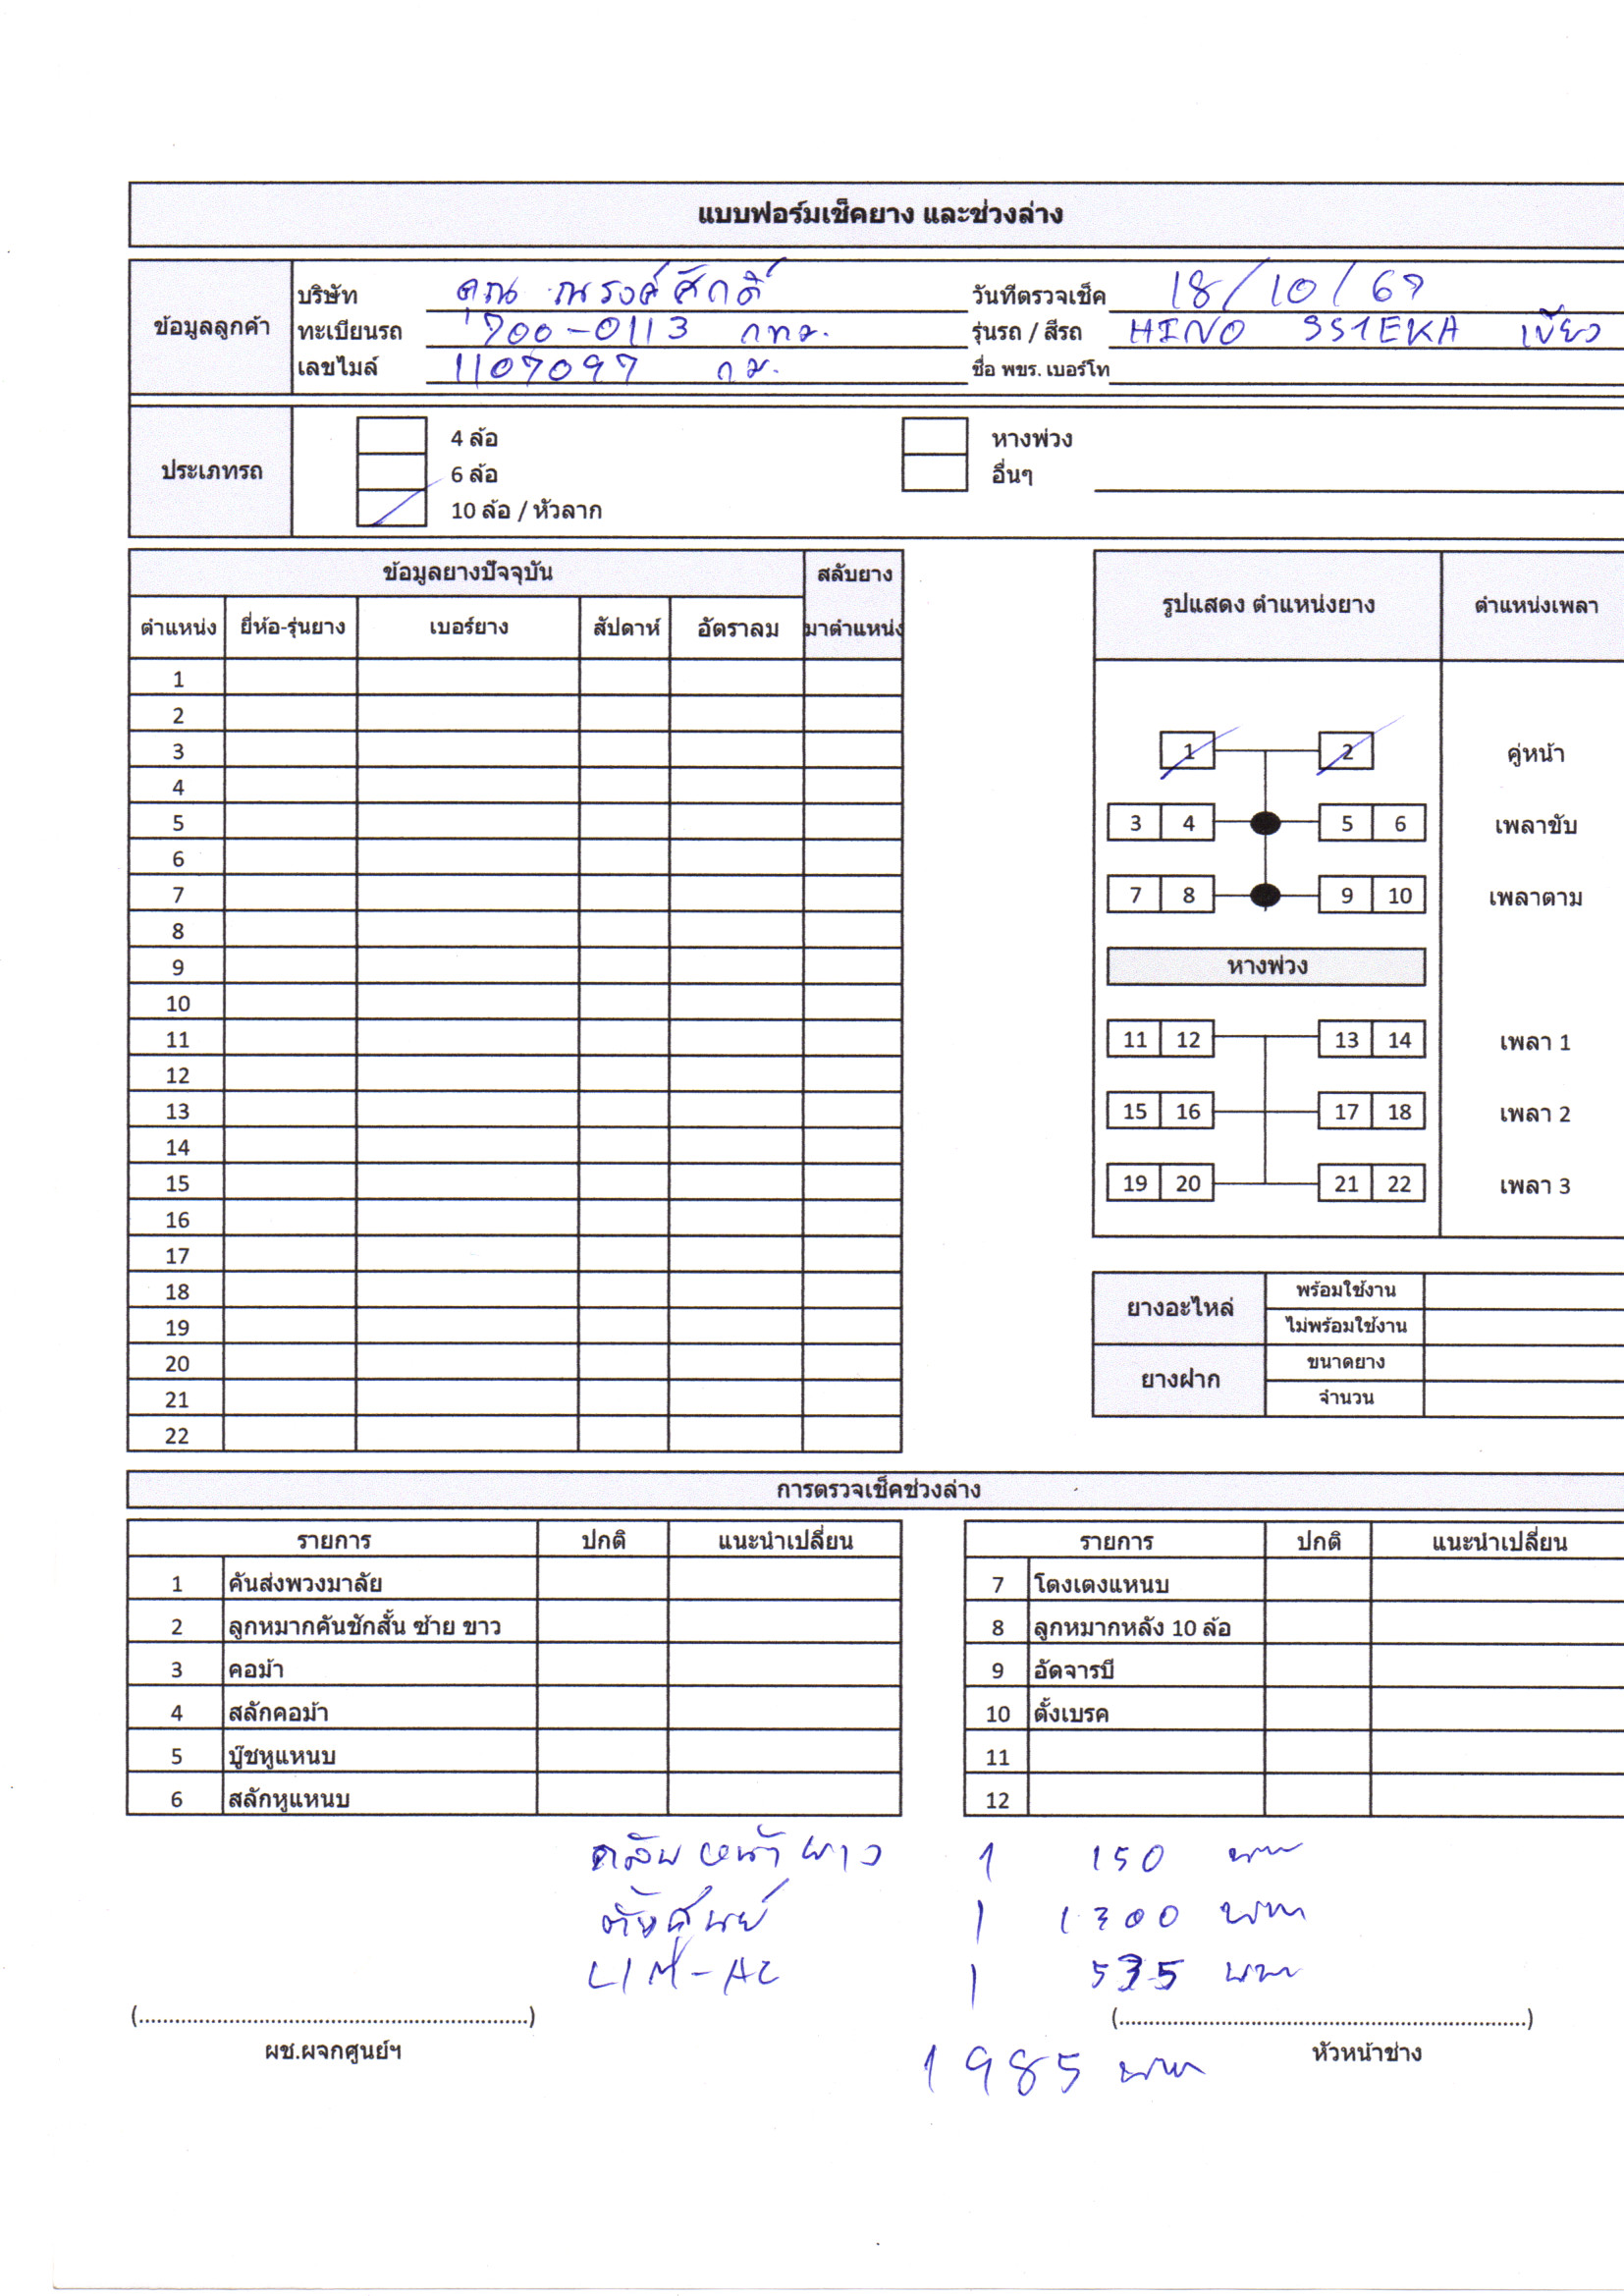 แบบฟอร์มเช็คยาง และช่วงล่าง
ข้อมูลลูกค้า
บริษัท คุณ ณรงค์ศักดิ์ วันที่ตรวจเช็ค 18/10/67
ทะเบียนรถ 700-0113 กทม. รุ่นรถ / สีรถ HINO SS1EKA เขียว
เลขไมล์ 1107097 กม. ชื่อ พขร. เบอร์โท
ประเภทรถ
4 ล้อ หางพ่วง
6 ล้อ อื่นๆ
10 ล้อ / หัวลาก
ข้อมูลยางปัจจุบัน สลับยาง
ตำแหน่ง ยี่ห้อ-รุ่นยาง เบอร์ยาง สัปดาห์ อัตราลม มาตำแหน่ง
1
2
3
4
5
6
7
8
9
10
11
12
13
14
15
16
17
18
19
20
21
22
รูปแสดง ตำแหน่งยาง ตำแหน่งเพลา
1 2 คู่หน้า
3 4 5 6 เพลาขับ
7 8 9 10 เพลาตาม
หางพ่วง
11 12 13 14 เพลา 1
15 16 17 18 เพลา 2
19 20 21 22 เพลา 3
ยางอะไหล่ พร้อมใช้งาน
ไม่พร้อมใช้งาน
ยางฝาก ขนาดยาง
จำนวน
การตรวจเช็คช่วงล่าง
รายการ ปกติ แนะนำเปลี่ยน
1 คันส่งพวงมาลัย
2 ลูกหมากคันชักสั้น ซ้าย ขาว
3 คอม้า
4 สลักคอม้า
5 บู๊ชหูแหนบ
6 สลักหูแหนบ
รายการ ปกติ แนะนำเปลี่ยน
7 โตงเตงแหนบ
8 ลูกหมากหลัง 10 ล้อ
9 อัดจารบี
10 ตั้งเบรค
11
12
กลับหน้ายาง 1 150 บาท
ตั้งศูนย์ 1 1300 บาท
1 535 บาท
(..................................................................) (.....................................................................)
ผช.ผจกศูนย์ฯ หัวหน้าช่าง
1985 บาท